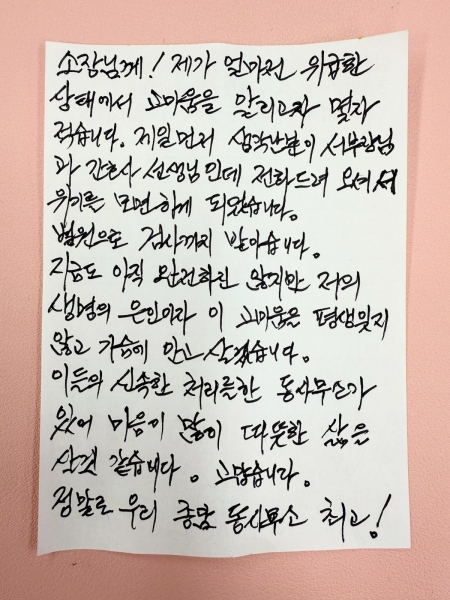 소장님께! 제가 얼마전 위급한
상태에서 고마움을 알리고자 몇자
적습니다. 제일먼저 생각난분이 서부장님
과 간호사 선생님인데 전화드려 오셔서
위기를 모면하게 되었습니다.
병원으로 검사까지 받아습니다.
지금도 아직 완전하진 않지만 저의
생명의 은인이라 이 고마움을 평생잊지
않고 가슴에 안고 살겠습니다.
이들의 신속한 처리를한 동사무소가
있어 마음이 많이 따뜻한 삶을
사것 같습니다. 고맙습니다.
정말로 우리 종암 동사무소 최고!